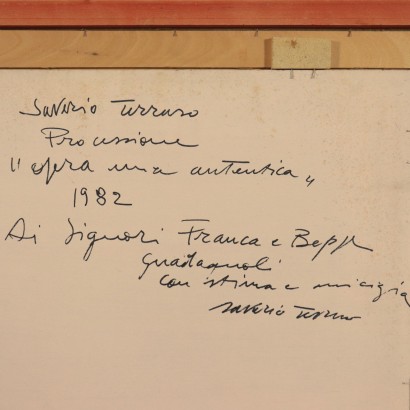 Saverio Terruso
Processione
"opera mia autentica"
1982
Ai Signori Franca e Beppe
Guadagnoli
con stima e amicizia
Saverio Terruso